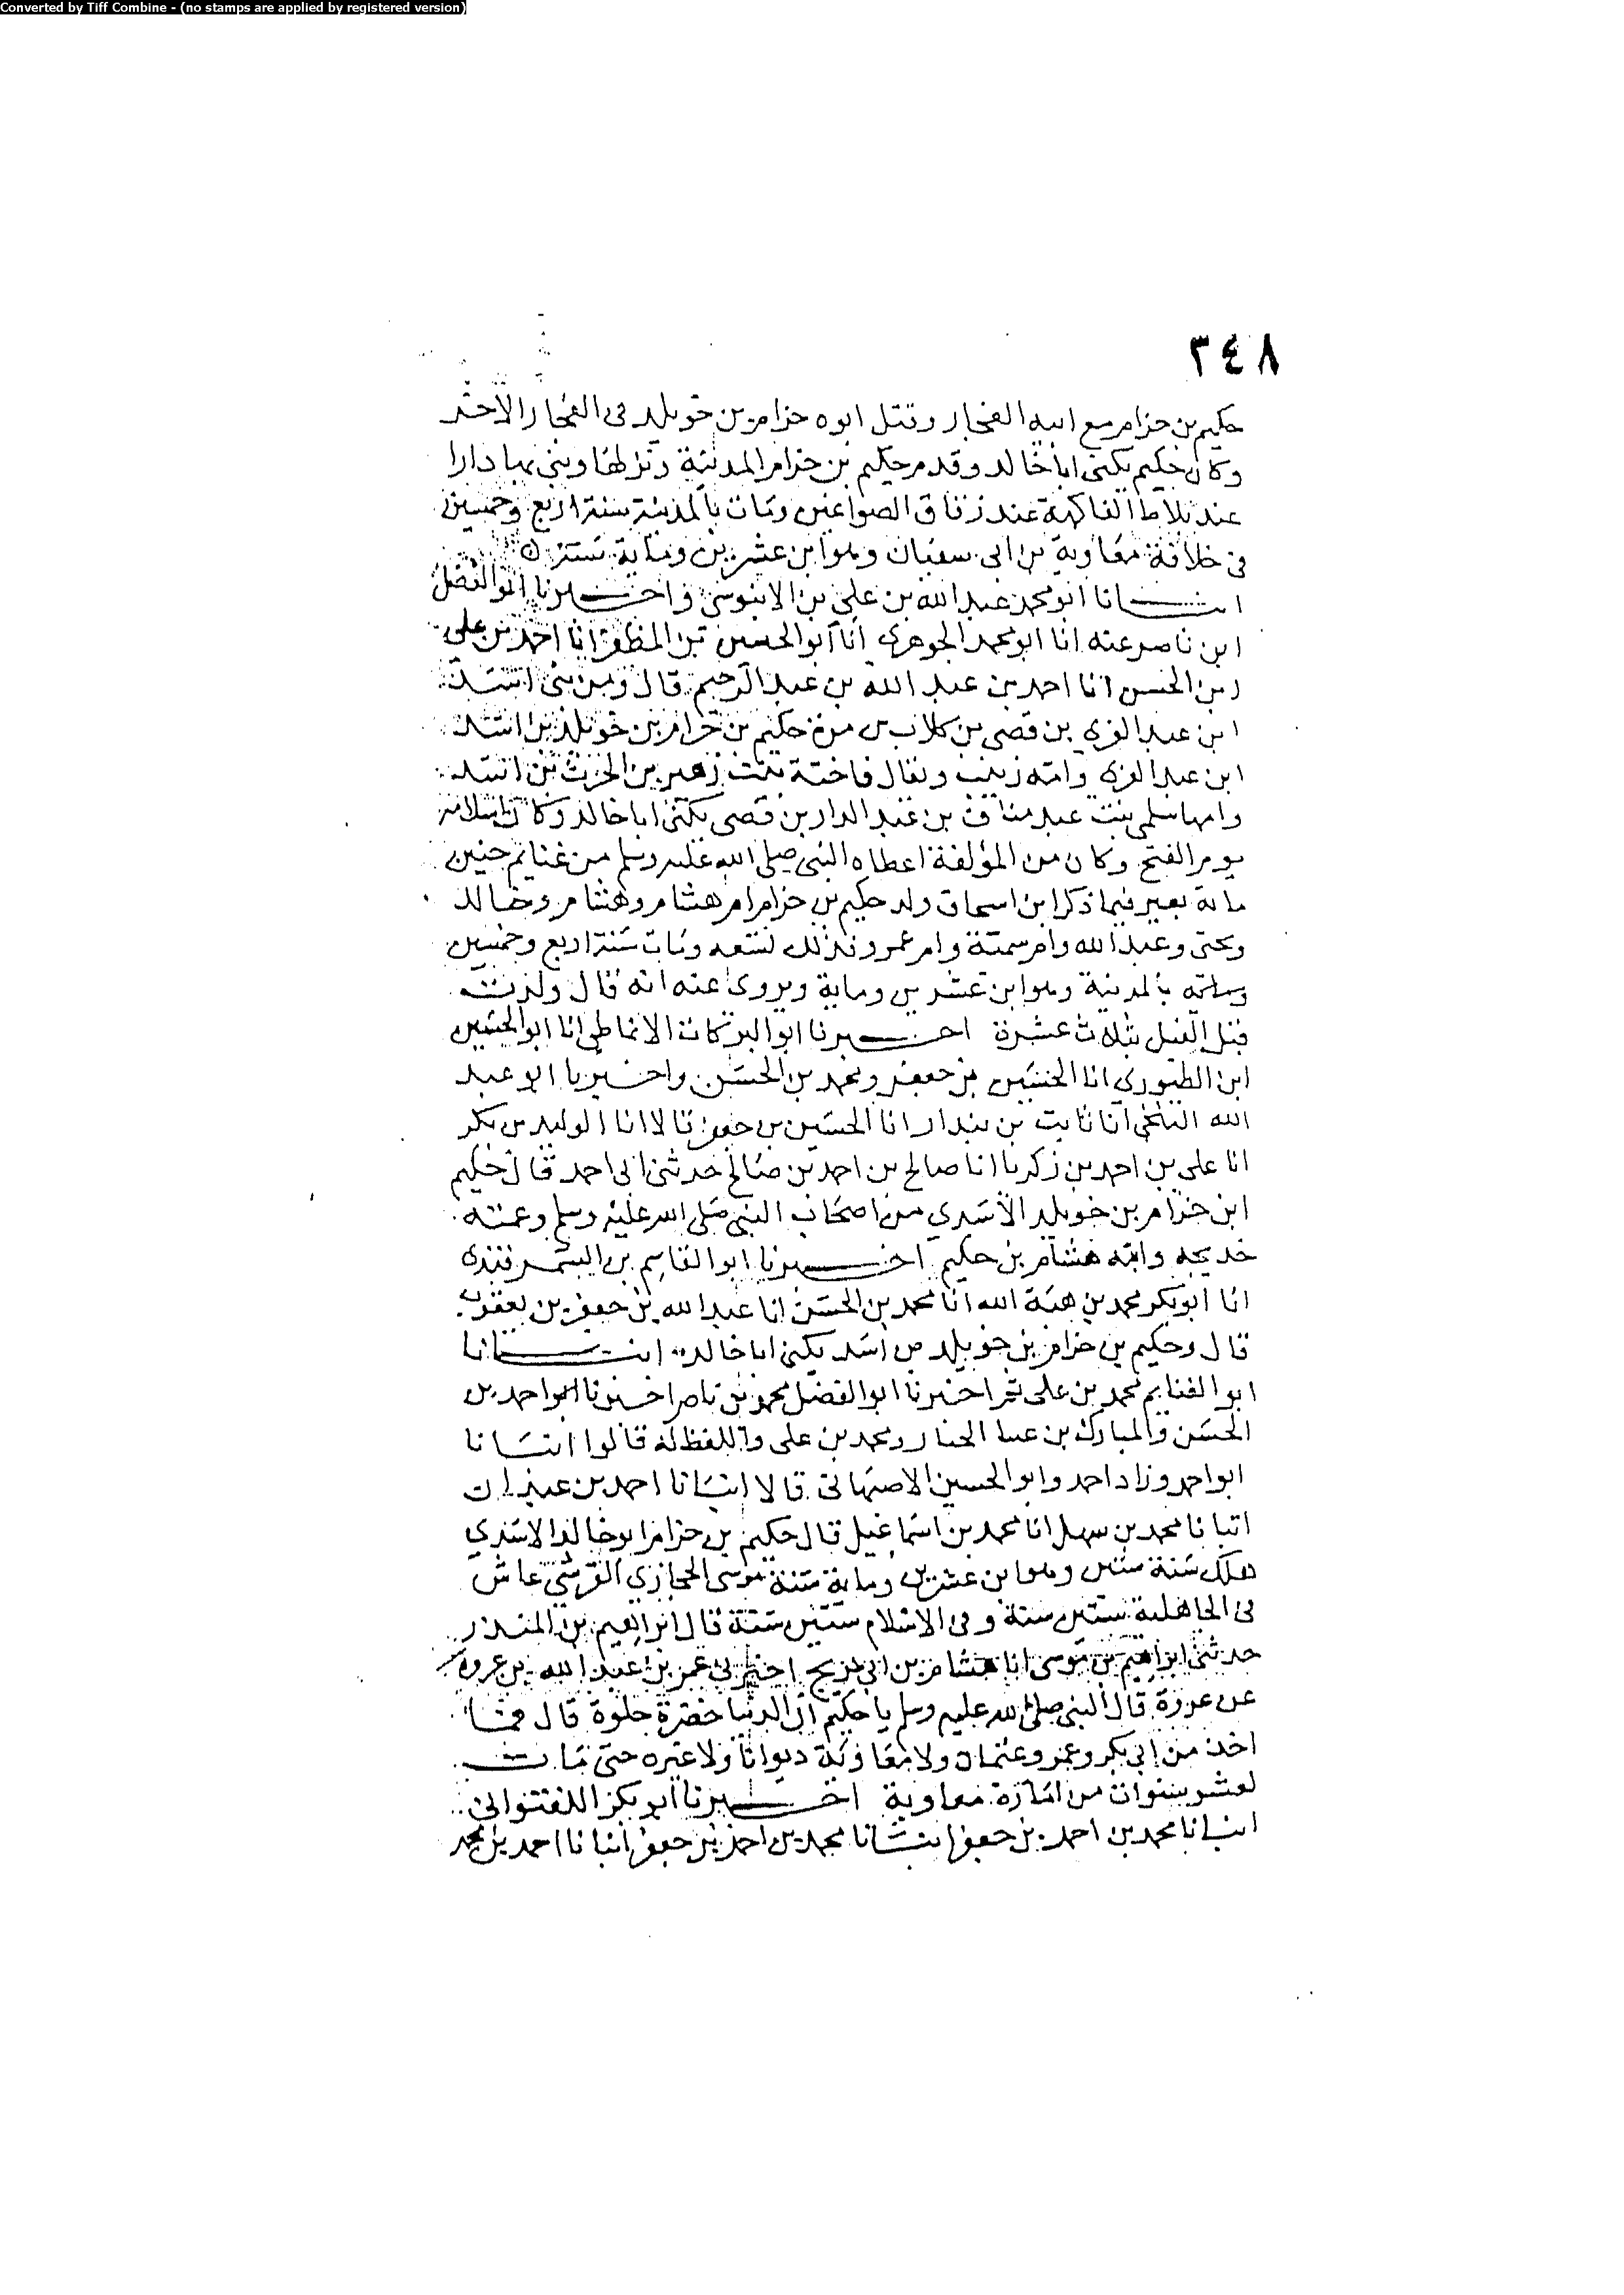 Converted by Tiff Combine - (no stamps are applied by registered version)
٣٤٨
حكيم بن حزام مع ابيه الفجار وقتل ابوه حزام بن خويلد فى الفجار الاخر
وكان حكيم يكنى ابا خالد وقدم حكيم بن حزام المدينة ونزلها وبنى بها دارا
عند بلاط الفاكهة عند زقاق الصواغين ومات بالمدينة سنة اربع وخمسين
فى خلافة معاوية بن ابى سفيان وهو ابن عشرين وماية سنة
انبانا ابو محمد عبد الله بن على بن الابنوسى واخبرنا ابو الفضل
ابن ناصر عنه انا ابو محمد الجوهرى انا ابو الحسين بن المظفر انا احمد بن على
بن الحسن انا احمد بن عبد الله بن عبد الرحيم قال ومن بنى اسد
ابن عبد العزى بن قصى بن كلاب بن مرة حكيم بن حزام بن خويلد بن اسد
ابن عبد العزى وامه زينب ويقال فاختة بنت زهير بن الحرث بن اسد
وامها سلمى بنت عبد مناف بن عبد الدار بن قصى يكنى ابا خالد وكان اسلامه
يوم الفتح وكان من المؤلفة اعطاه النبى صلى الله عليه وسلم من غنايم حنين
ماية بعير فيما ذكر ابن اسحاق ولد حكيم بن حزام ام هشام وهشام وخالد
ويحيى وعبد الله وام سمية وام عمرو ومات سنة اربع وخمسين
بالمدينة وهو ابن عشرين وماية ويروى عنه انه قال ولدت
قبل الفيل بثلاث عشرة اخبرنا ابو البركات الانماطى انا ابو الحسين
ابن الطيورى انا الحسين بن جعفر ومحمد بن الحسن واخبرنا ابو عبد
الله البلخى انا ثابت بن بندار انا الحسين بن جعفر قالا انا الوليد بن بكر
انا على بن احمد بن زكريا انا صالح بن احمد بن صالح حدثنى ابى احمد قال حكيم
ابن حزام بن خويلد الاسدي من اصحاب النبى صلى الله عليه وسلم وعمته
خديجه وابنه هشام بن حكيم اخبرنا ابو القاسم بن السمرقندى
انا ابو بكر محمد بن هبة الله انا محمد بن الحسن انا عبد الله بن جعفر بن يعقوب
قال وحكيم بن حزام بن خويلد من اسد يكنى ابا خالد انبانا
ابو الغنايم محمد بن على ثم اخبرنا ابو الفضل محمد بن ناصر اخبرنا ابو احمد بن
الحسن والمبارك بن عبد الجبار ومحمد بن على واللفظ له قالوا انبانا
ابو احمد وزاد احمد وابو الحسين الاصبهانى قالا انبانا احمد بن عبدان
انبانا محمد بن سهل انا محمد بن اسماعيل قال حكيم بن حزام ابو خالد الاسدي
هلك سنة ستين وهو ابن عشرين وماية سنة الحجازي القرشى عاش
فى الجاهلية ستين سنة وفى الاسلام ستين سنة قال ابراهيم بن المنذر
حدثنى ابراهيم بن موسى انا هشام بن ابى جريج اخبرنى عمر بن عبد الله بن عروة
عن عروة قال النبى صلى الله عليه وسلم يا حكيم ان الدنيا خضرة حلوة قال فما
اخذ من ابى بكر وعمر وعثمان ولا معاوية ديوانا ولا غيره حتى مات
لعشر سنوات من امارة معاوية اخبرنا ابو بكر اللفتوانى
انبانا محمد بن احمد بن جعفر انبانا محمد بن احمد بن جعفر انبانا احمد بن محمد